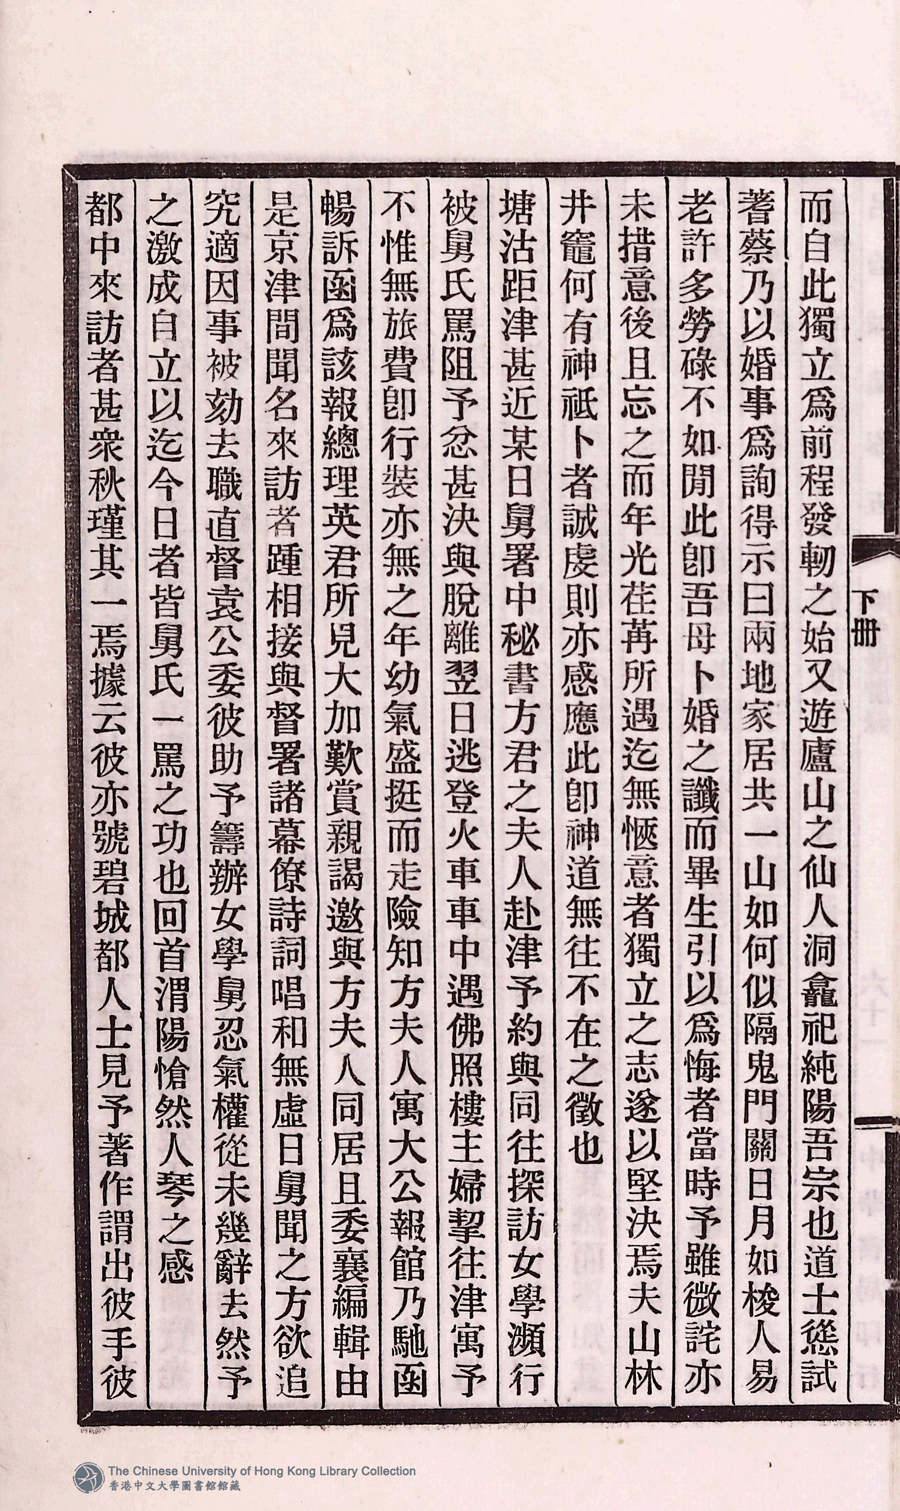 下冊
而自此獨立爲前程發軔之始又遊廬山之仙人洞龕祀純陽吾宗也道士慫試
著蔡乃以婚事爲詢得示曰兩地家居共一山如何似隔鬼門關日月如梭人易
老許多勞碌不如閒此卽吾母卜婚之讖而畢生引以爲悔者當時予雖微詫亦
未措意後且忘之而年光荏苒所遇迄無愜意者獨立之志遂以堅決焉夫山林
井竈何有神祇卜者誠虔則亦感應此卽神道無往不在之徵也
塘沽距津甚近某日舅署中秘書方君之夫人赴津予約與同往探訪女學瀕行
被舅氏罵阻予忿甚決與脫離翌日逃登火車車中遇佛照樓主婦挈往津寓予
不惟無旅費卽行裝亦無之年幼氣盛挺而走險知方夫人寓大公報館乃馳函
暢訴函爲該報總理英君所見大加歎賞親謁邀與方夫人同居且委襄編輯由
是京津間聞名來訪者踵相接與督署諸幕僚詩詞唱和無虛日舅聞之方欲追
究適因事被劾去職直督袁公委彼助予籌辦女學舅忍氣權從未幾辭去然予
之激成自立以迄今日者皆舅氏一罵之功也回首渭陽愴然人琴之感
都中來訪者甚衆秋瑾其一焉據云彼亦號碧城都人士見予著作謂出彼手彼
The Chinese University of Hong Kong Library Collection
香港中文大學圖書館館藏